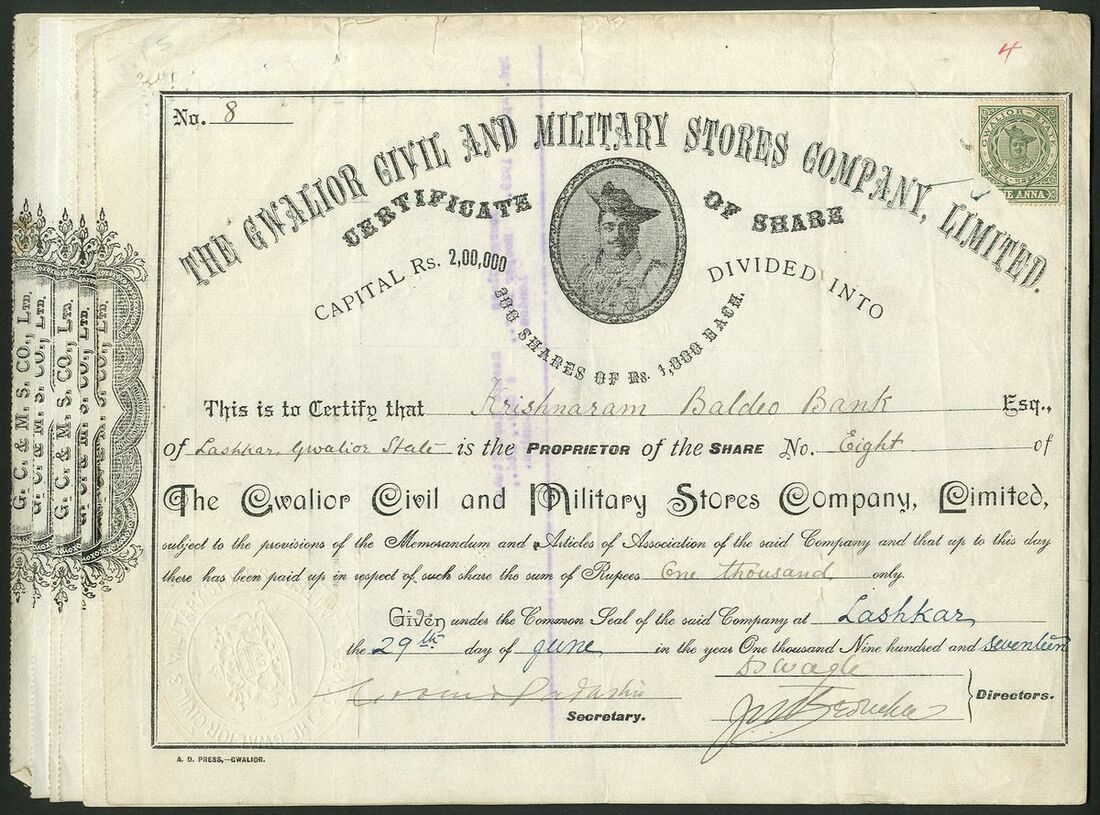 4
No. 8
THE GWALIOR CIVIL AND MILITARY STORES COMPANY, LIMITED.
CERTIFICATE OF SHARE
CAPITAL Rs. 2,00,000 DIVIDED INTO
200 SHARES OF Rs. 1,000 EACH.
GWALIOR STATE
ANNA
This is to Certify that Krishnaram Baldeo Bank Esq.,
of Lashkar, Gwalior State is the PROPRIETOR of the SHARE No. Eight of
The Gwalior Civil and Military Stores Company, Limited,
subject to the provisions of the Memorandum and Articles of Association of the said Company and that up to this day
there has been paid up in respect of such share the sum of Rupees One thousand only.
Given under the Common Seal of the said Company at Lashkar
the 29th day of June in the year One thousand Nine hundred and seventeen
Secretary.
Directors.
A. D. PRESS,—GWALIOR.
G. C. & M. S. CO., LTD.
G. C. & M. S. CO., LTD.
G. C. & M. S. CO., LTD.